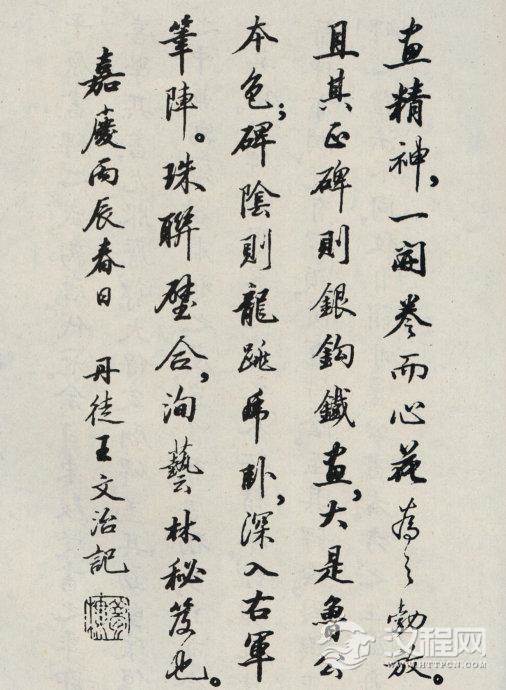 畫精神，一開卷而心花為之勃放。
且其正碑則銀鈎鐵畫，大是魯公
本色；碑陰則龍跳虎卧，深入右軍
筆陣。珠聯璧合，洵藝林秘笈也。
嘉慶丙辰春日 丹徒王文治記
汉程网
WWW.HTTPCN.COM